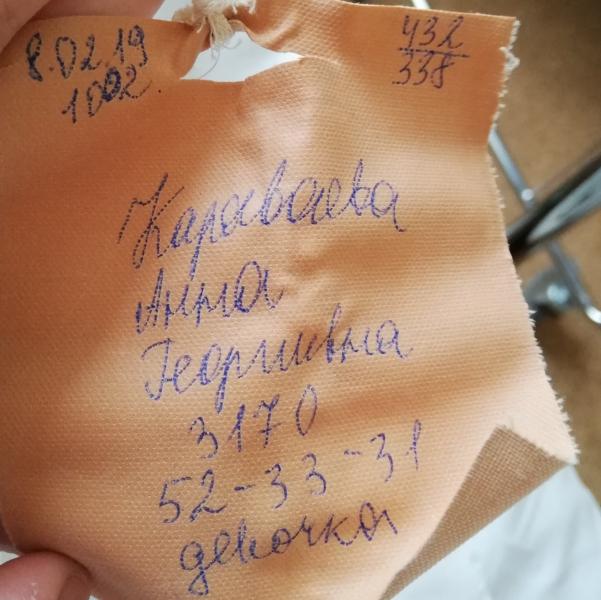 8.02.19
1002
432
338
Караваева
Анна
Георгиевна
3170
52-33-31
девочка